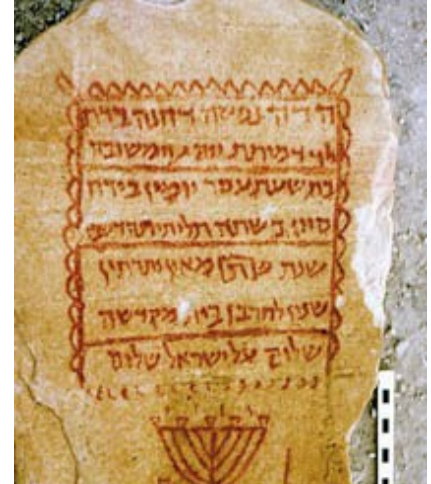 הדה נפשה דחנה ברת
דמיתת משובה
בתשעת עסר יומין בירח
סיון בשתה תליתיתה
שנת מאין ותרתין
שנין לחרבן בית מקדשה
שלום על ישראל שלום